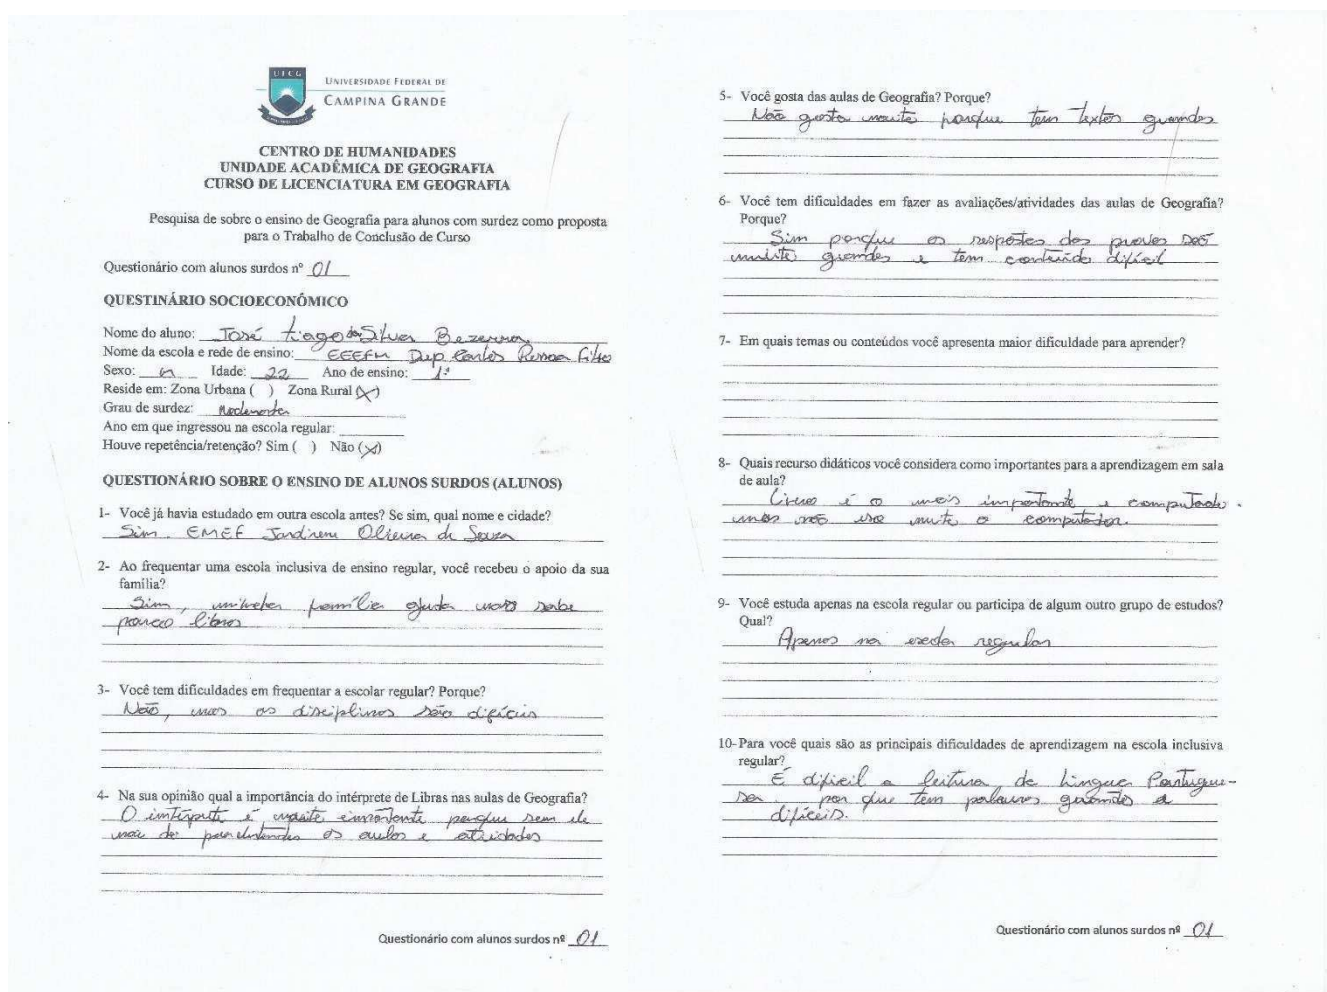 UFCG
UNIVERSIDADE FEDERAL DE
CAMPINA GRANDE
CENTRO DE HUMANIDADES
UNIDADE ACADÊMICA DE GEOGRAFIA
CURSO DE LICENCIATURA EM GEOGRAFIA
Pesquisa de sobre o ensino de Geografia para alunos com surdez como proposta
para o Trabalho de Conclusão de Curso
Questionário com alunos surdos nº 01
QUESTINÁRIO SOCIOECONÔMICO
Nome do aluno: José tiago da Silva Bezerra
Nome da escola e rede de ensino: EEEFM Dep Carlos Pessoa Filho
Sexo: M Idade: 22 Ano de ensino: 1º
Reside em: Zona Urbana ( ) Zona Rural (X)
Grau de surdez: Moderada
Ano em que ingressou na escola regular:
Houve repetência/retenção? Sim ( ) Não (X)
QUESTIONÁRIO SOBRE O ENSINO DE ALUNOS SURDOS (ALUNOS)
1- Você já havia estudado em outra escola antes? Se sim, qual nome e cidade?
Sim. EMEF Oliveira de Souza
2- Ao frequentar uma escola inclusiva de ensino regular, você recebeu o apoio da sua
família?
Sim, minha família ajuda mas sabe
pouco libras
3- Você tem dificuldades em frequentar a escolar regular? Porque?
Não, mas as disciplinas são difíceis
4- Na sua opinião qual a importância do intérprete de Libras nas aulas de Geografia?
O intérprete é muito importante porque sem ele
não da para entender as aulas e atividades
Questionário com alunos surdos nº 01
5- Você gosta das aulas de Geografia? Porque?
Não gosto muito porque tem textos grandes
6- Você tem dificuldades em fazer as avaliações/atividades das aulas de Geografia?
Porque?
Sim porque as respostas das provas são
muito grandes e tem conteúdo difícil
7- Em quais temas ou conteúdos você apresenta maior dificuldade para aprender?
8- Quais recurso didáticos você considera como importantes para a aprendizagem em sala
de aula?
Livro é o mais importante e computado.
mas não uso muito o computador.
9- Você estuda apenas na escola regular ou participa de algum outro grupo de estudos?
Qual?
Apenas na escola regular
10- Para você quais são as principais dificuldades de aprendizagem na escola inclusiva
regular?
É difícil a leitura de Língua Portugue-
sa, por que tem palavras grandes e
difíceis.
Questionário com alunos surdos nº 01